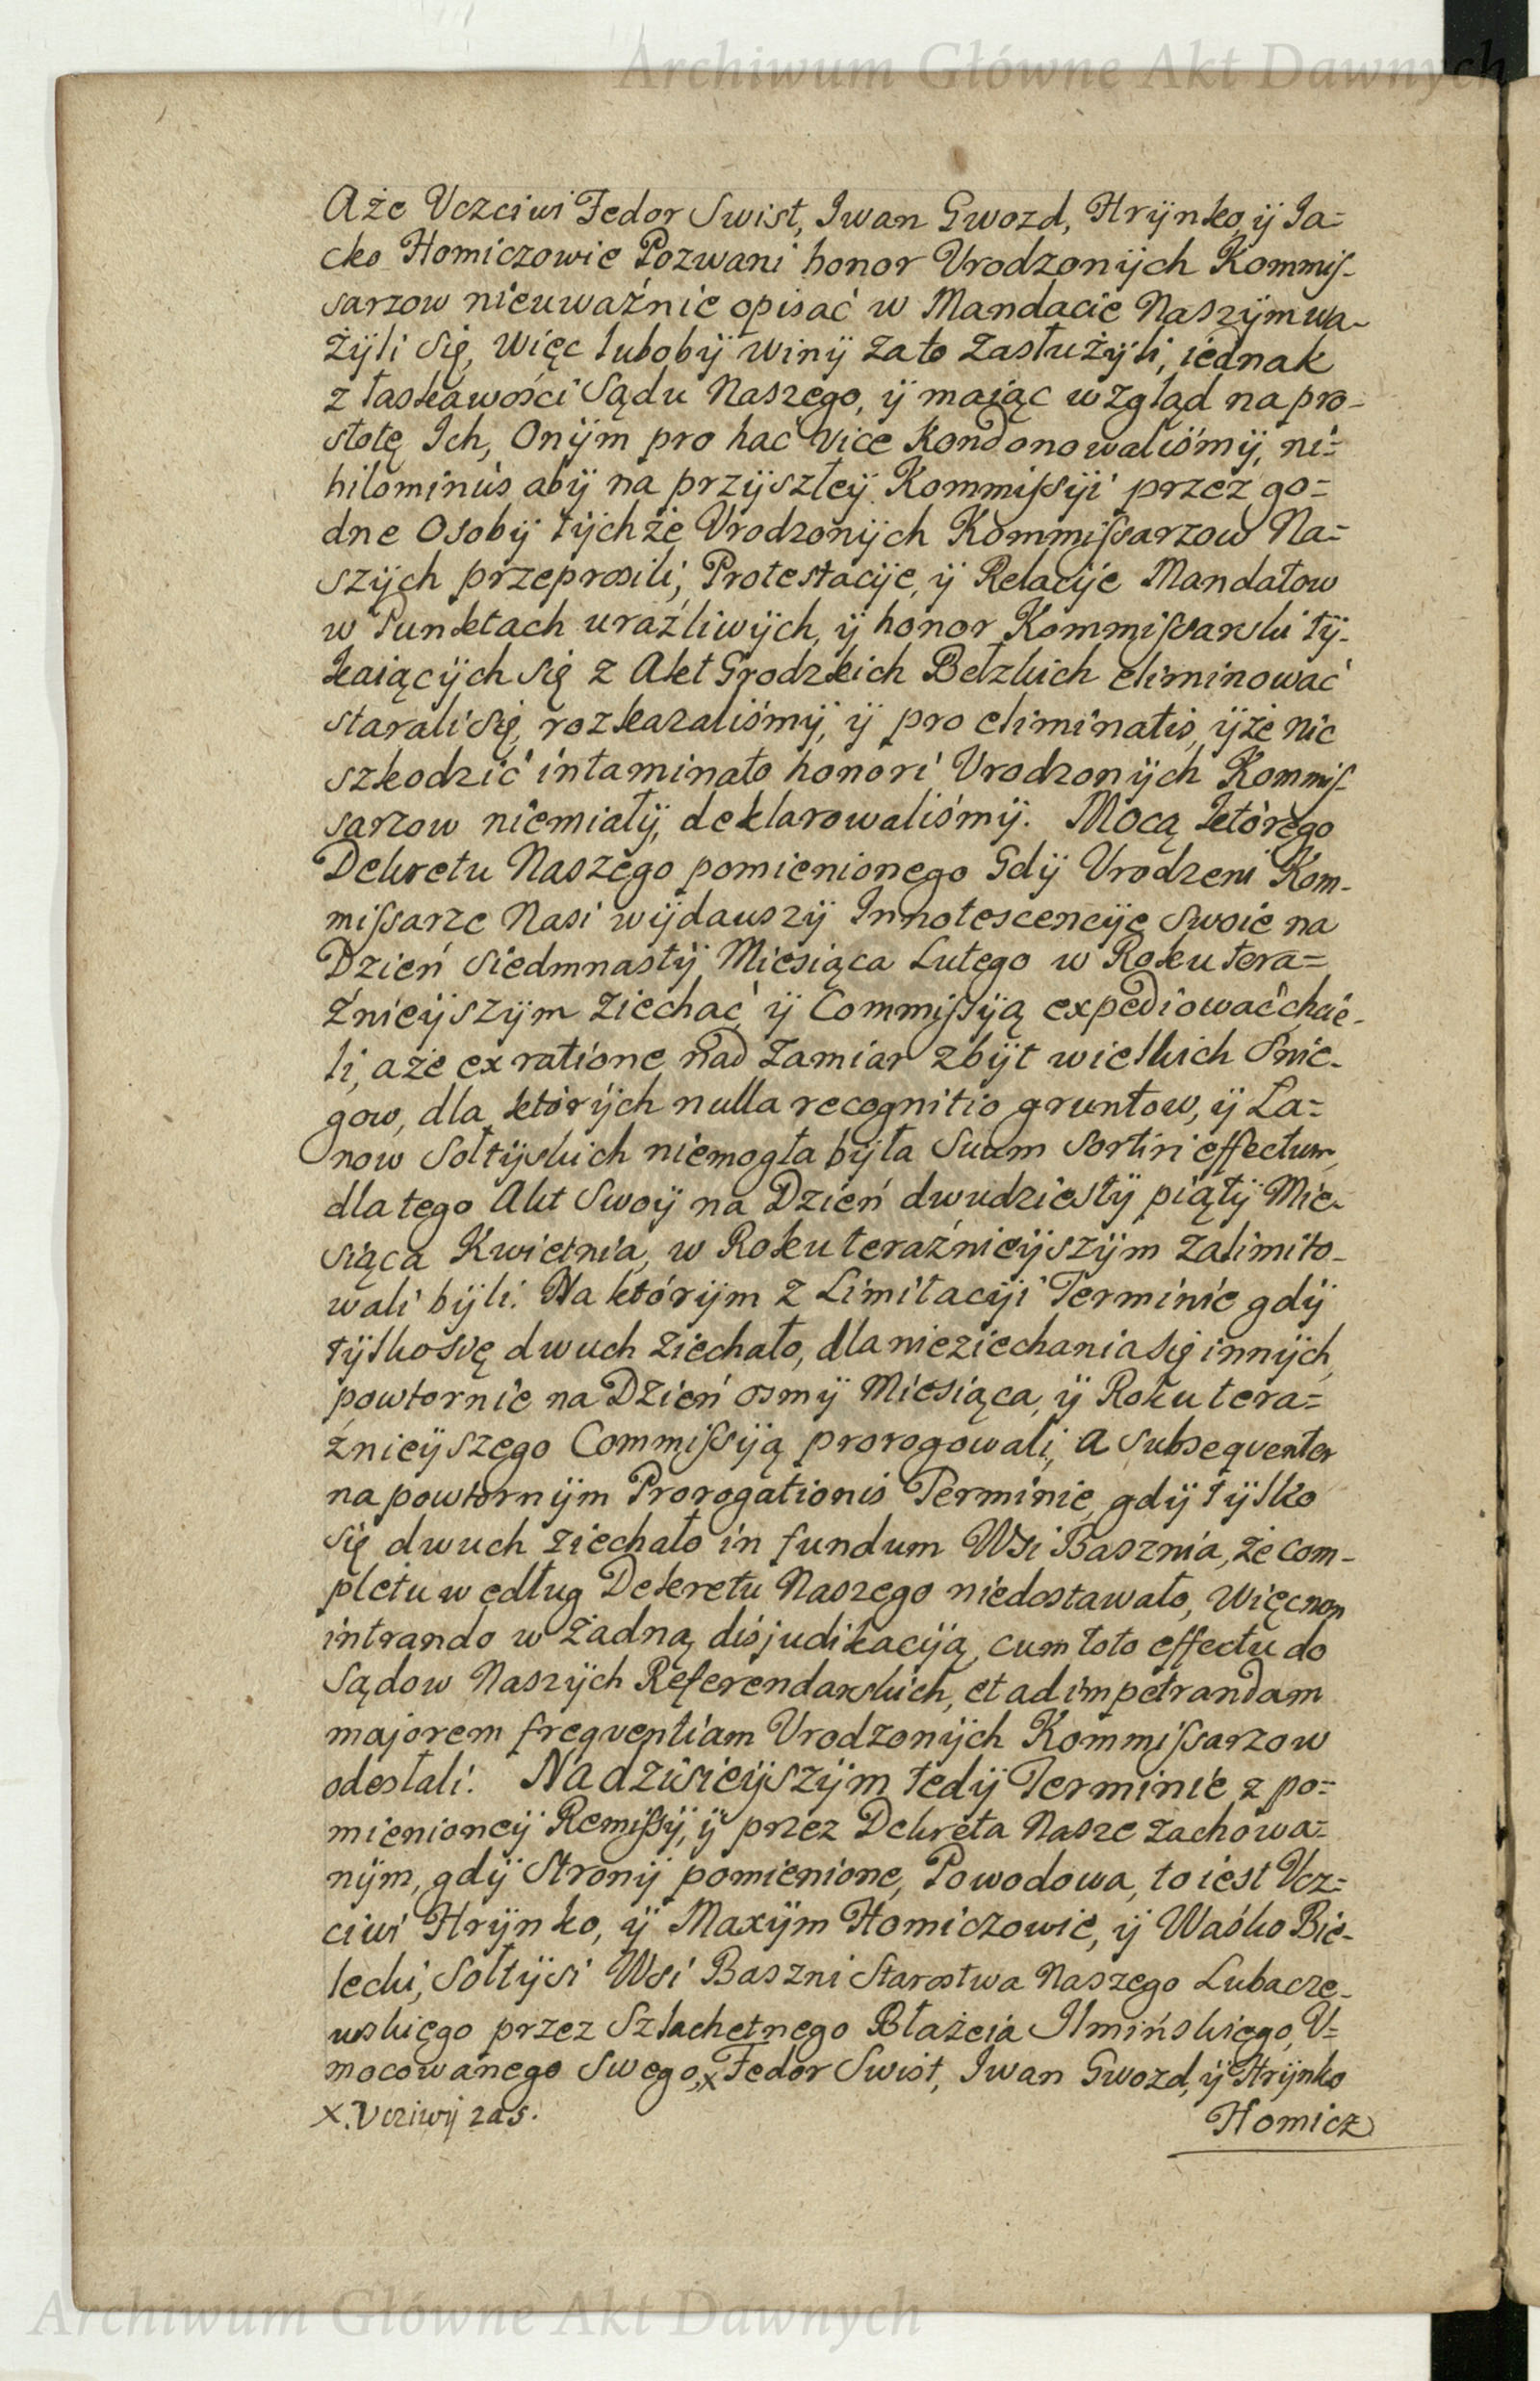 Archiwum Główne Akt Dawnych
Aże Uczciwi Fedor Swist, Iwan Gwozd, Hrÿnko, ÿ Ja=
cko Homiczowie Pozwani honor Urodzonÿch Kommis-
sarzow nieuważnie opisać w Mandacie Naszÿm wa-
żÿli się, więc luboby winÿ zato zasłużÿli, iednak
z łaskawości Sądu Naszego, ÿ maiąc wzgląd na pro-
stotę Ich, Onÿm pro hac vice kondonowaliśmÿ, ni=
hilominus abÿ na przÿszłeÿ Kommissÿi przez go=
dne Osobÿ tÿchże Urodzonÿch Kommissarzow Na=
szÿch przeprosili, Protestacÿe, ÿ Relacÿe Mandatow
w Punktach uraźliwÿch, ÿ honor Kommissarski tÿ-
kaiącÿch się z Akt Grodzkich Bełzkich eliminować
starali się, rozkazaliśmÿ, ÿ pro eliminatis, ÿże nic
szkodzić intaminato honori Urodzonÿch Kommis-
sarzow niemiałÿ, deklarowaliśmÿ. Mocą którego
Dekretu Naszego pomienionego Gdÿ Urodzeni Kom-
missarze Nasi wÿdawszÿ Innotescencÿe Swoie na
Dzień siedmnastÿ Miesiąca Lutego w Roku tera=
źnieÿszÿm ziechać ÿ Commissÿą expediować chcie-
li, aże ex ratione nad zamiar zbÿt wielkich Snie-
gow, dla którÿch nulla recognitio gruntow, ÿ Ła=
now Sołtÿskich niemogła bÿła Suum sortiri effectum,
dla tego Akt Swoÿ na Dzień dwudziestÿ piątÿ Mie-
siąca Kwietnia, w Roku teraźnieÿszÿm zalimito-
wali bÿli. Na którÿm z Limitacÿi Terminie gdÿ
tÿlko się dwuch ziechało, dla nieziechania się innÿch,
powtornie na Dzień osmÿ Miesiąca, ÿ Roku tera=
źnieÿszego Commissÿą prorogowali, a subseqventer
na powtornÿm Prorogationis Terminie, gdÿ tÿlko
się dwuch ziechało in fundum Wsi Basznia, że com-
pletu według Dekretu Naszego niedostawało, więc non
intrando w żadną disjudikacÿą, cum toto effectu do
Sądow Naszÿch Referendarskich, et ad impetrandam
majorem freqventiam Urodzonÿch Kommissarzow
odesłali. Na dzisieÿszÿm tedÿ Terminie z po=
mienioneÿ Remissÿ, ÿ przez Dekreta Nasze zachowa=
nÿm, gdÿ Stronÿ pomienione, Powodowa, to iest Ucz=
ciwi Hrÿnko, ÿ Maxÿm Homiczowie, ÿ Waśko Bie-
lecki, Sołtÿsi Wsi Baszni Starostwa Naszego Lubacze-
wskiego przez Szlachetnego Błażeia Ilmińskiego, U=
mocowanego Swego, x Fedor Swist, Iwan Gwozd, ÿ Hrÿnko
X. Ucziwÿ zaś.
Homicz
Archiwum Główne Akt Dawnych